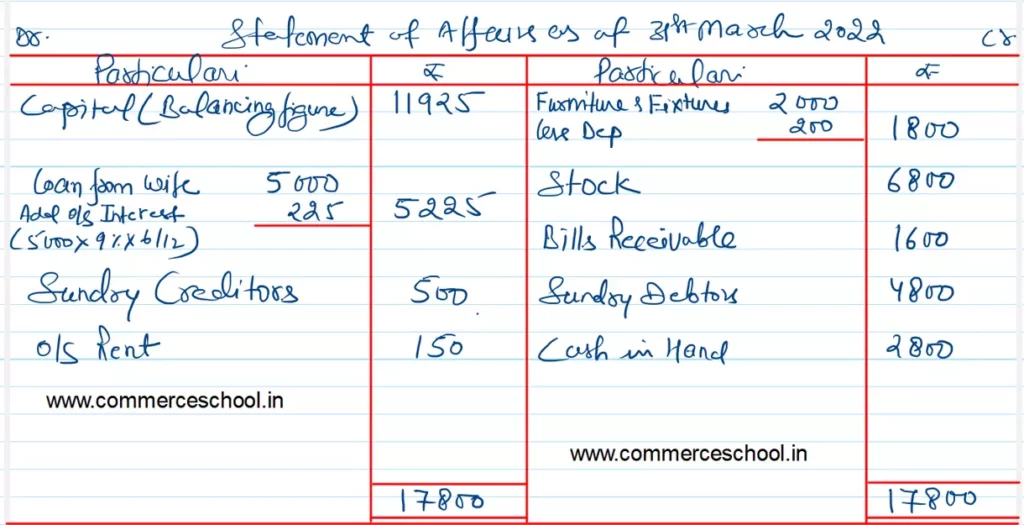 Dr. Statement of Affairs as at 31st March 2022 Cr
Particulars ₹ Particulars ₹
Capital (Balancing figure) 11925 Furniture & Fixtures 2000
less Dep 200 1800
Loan from wife 5000 Stock 6800
Add o/s Interest 225 5225
(5000 x 9% x 6/12) Bills Receivable 1600
Sundry Creditors 500 Sundry Debtors 4800
O/S Rent 150 Cash in Hand 2800
www.commerceschool.in
www.commerceschool.in
17800 17800